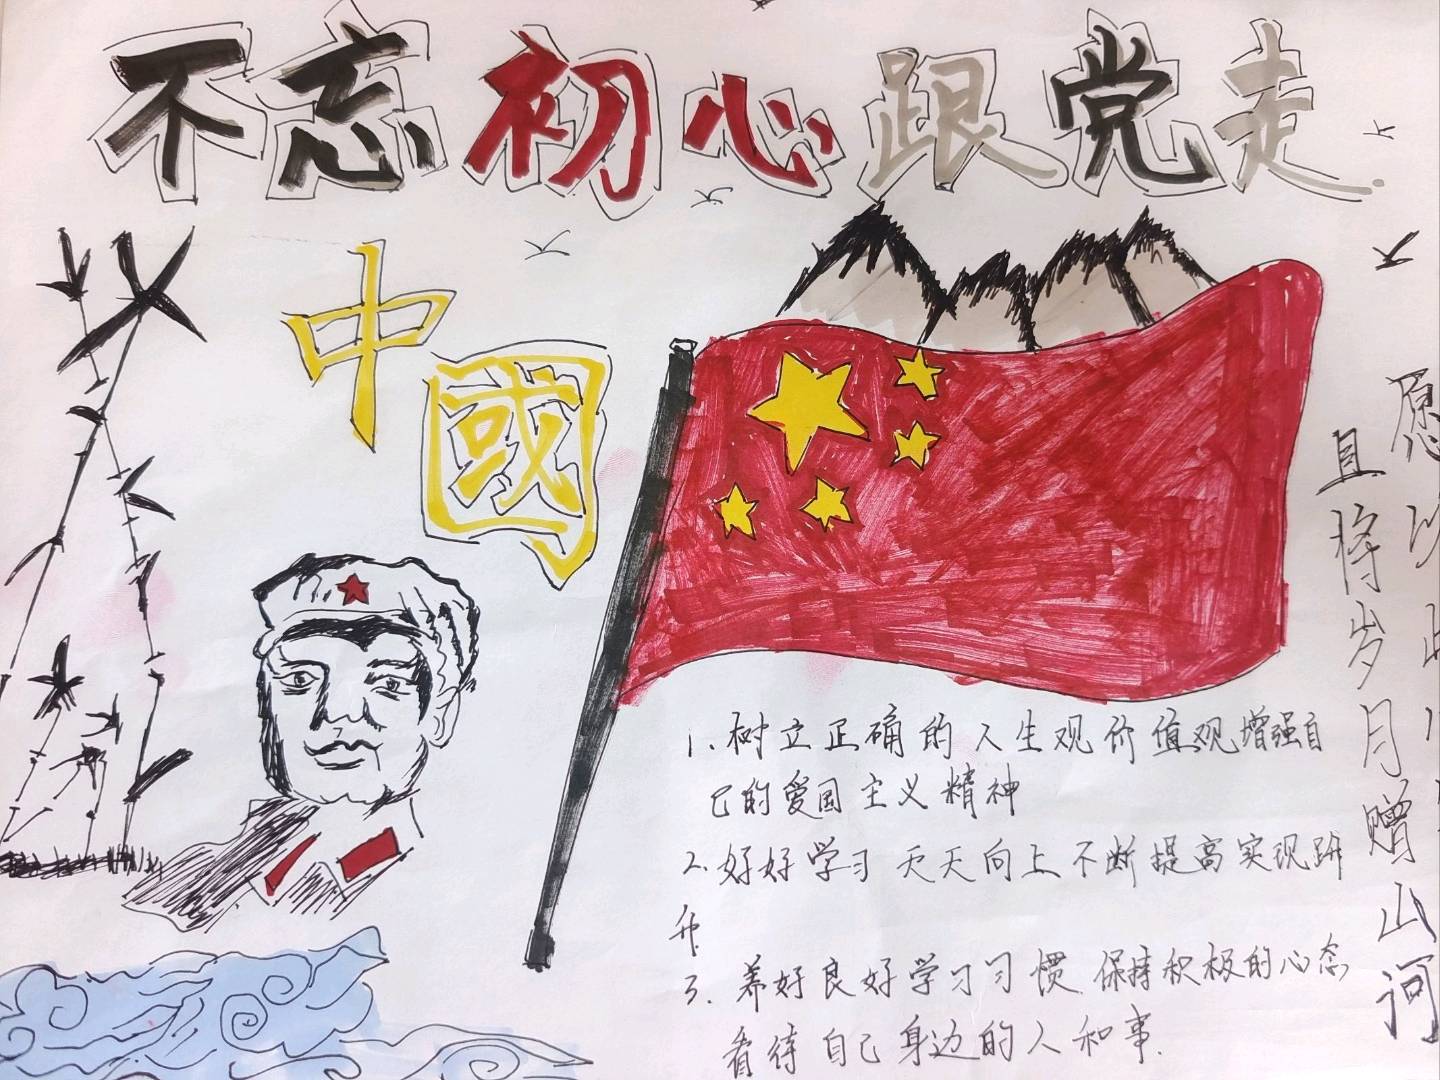 不忘初心跟党走
中國
1.树立正确的人生观价值观增强自
己的爱国主义精神
2.好好学习天天向上不断提高实现跃
升.
3.养好良好学习习惯.保持积极的心态
看待自己身边的人和事.
愿以此
且将岁月赠山河